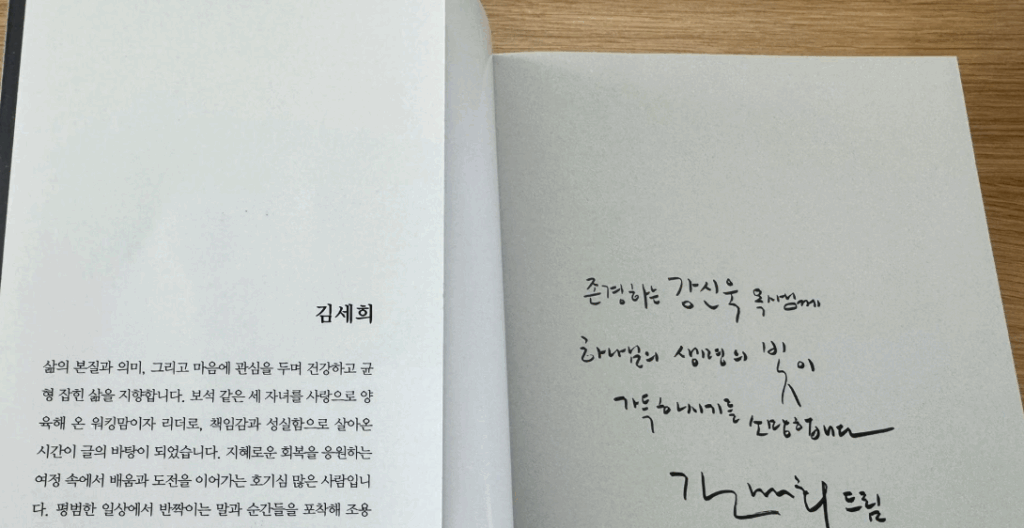 김세희
삶의 본질과 의미, 그리고 마음에 관심을 두며 건강하고 균
형 잡힌 삶을 지향합니다. 보석 같은 세 자녀를 사랑으로 양
육해 온 워킹맘이자 리더로, 책임감과 성실함으로 살아온
시간이 글의 바탕이 되었습니다. 지혜로운 회복을 응원하는
여정 속에서 배움과 도전을 이어가는 호기심 많은 사람입니
다. 평범한 일상에서 반짝이는 말과 순간들을 포착해 조용
존경하는 강신욱 목사님께
하나님의 생명의 빛이
가득하시기를 소망합니다
김세희 드림